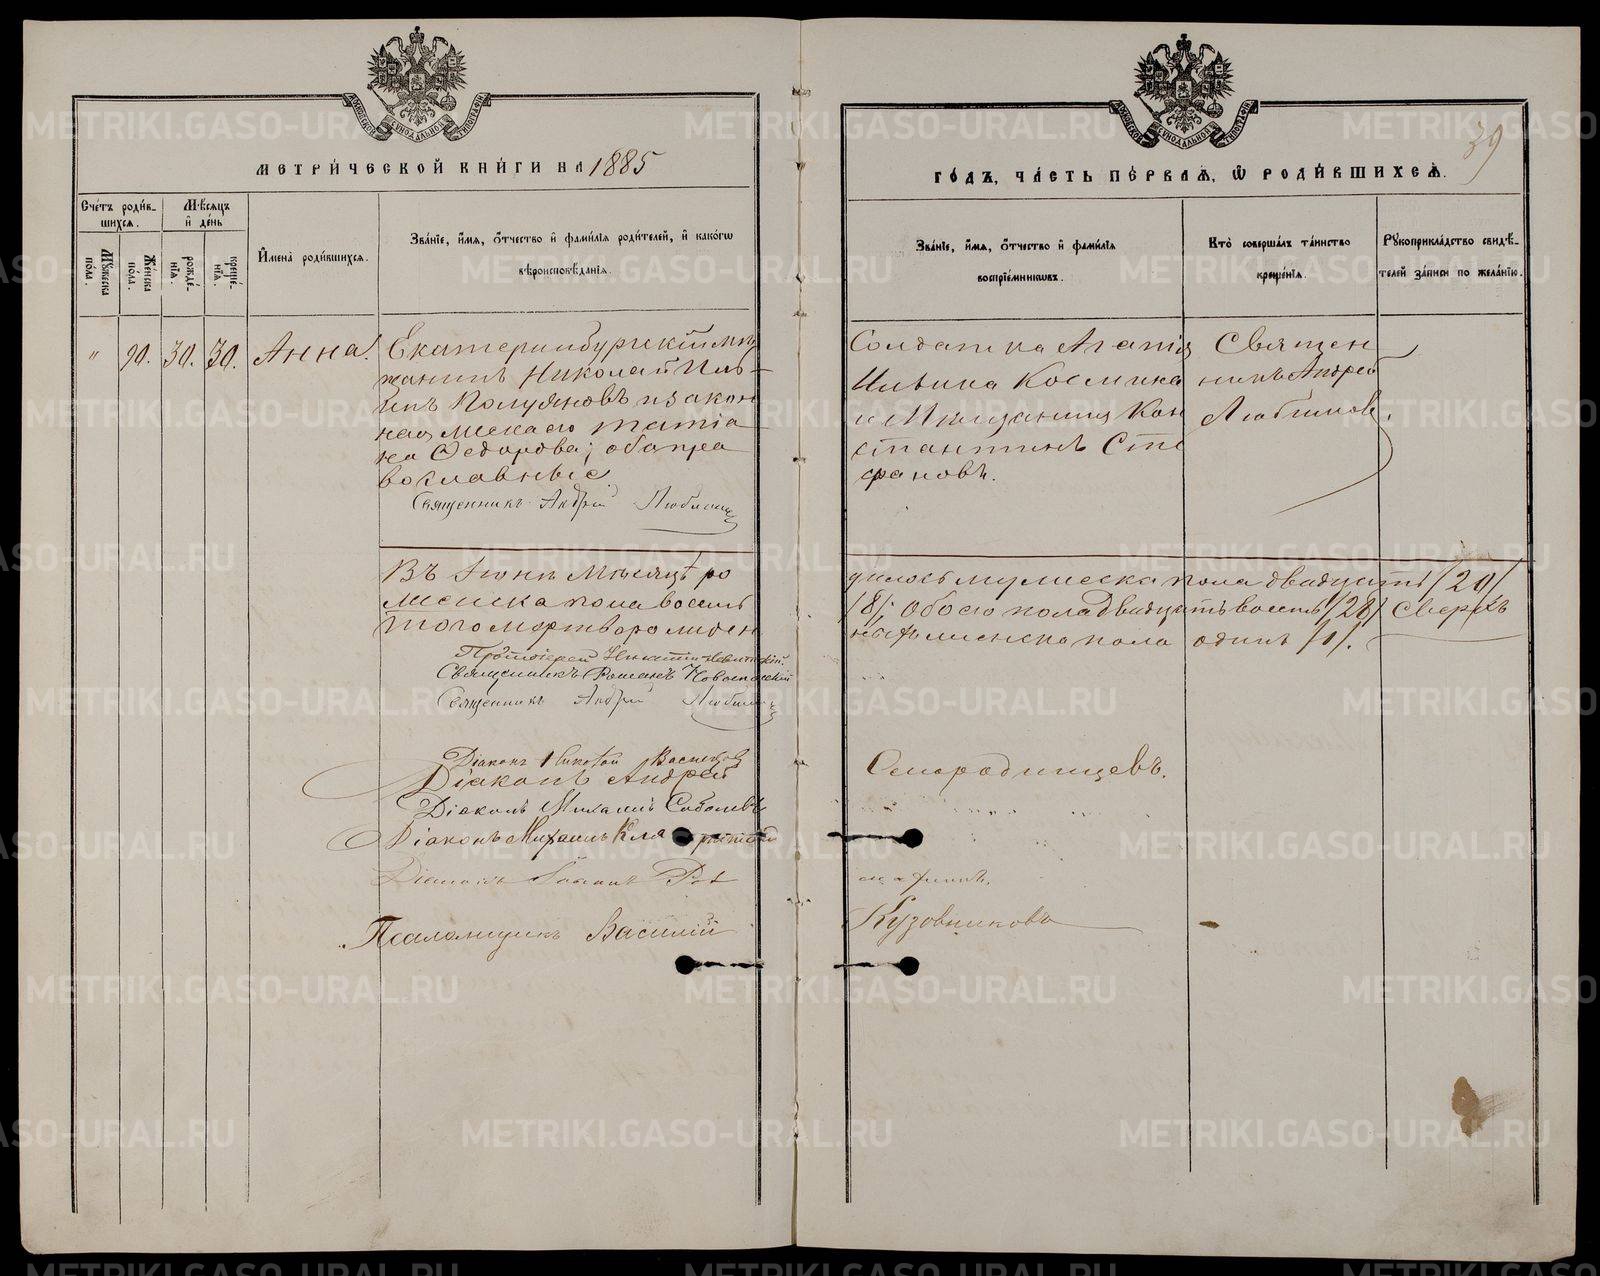 МЕТРИ́ЧЕСКОЙ КНИ́ГИ НА 1885
Сче́тъ роди́в-
шихся.
Мѣ́сяцъ
и҆ де́нь
Мꙋ́жеска по́ла.
Же́нска по́ла.
рожде́-
нїѧ.
креще́-
нїѧ.
И҆мена̀ роди́вшихсѧ.
Зва́нїе, и҆́мѧ, ѻ҆́тчество и҆ фамі́лїѧ роди́телей, и҆ како́гѡ
вѣроисповѣ́данїѧ.
" 90. 30. 30. Анна.
Екатеринбургскій мѣ
щанинъ Николай Иль
инъ Полуяновъ и закон
ная жена его Татіа
на Ѳедорова; оба пра
вославные.
Священникъ Андрей Любимовъ
Въ Іюнѣ Мѣсяцѣ ро
женска пола восемь
того мертворожден
Священникъ Романъ
Священникъ Андрей Любимовъ
Діаконъ Николай
Діаконъ Андрей
Діаконъ Михаилъ Соболевъ
Діаконъ Михаилъ
Діаконъ Іоаннъ
Псаломщикъ Василій
39
ГО́ДЪ, ЧА́СТЬ ПЕ́РВАѦ, Ѡ҆ РОДИ́ВШИХСѦ.
Зва́нїе, и҆́мѧ, ѻ҆́тчество и҆ фамі́лїѧ
воспрїе́мникѡвъ.
Кто̀ соверша́лъ та́инство
креще́нїѧ.
Рꙋкоприкла́дство свидѣ́-
телей за́писи по жела́нїю.
Солдатка Агапія
Ильина Космина
и Мѣщанинъ Кон
стантинъ Сте
фановъ.
Священ
никъ Андрей
Любимовъ.
дилось мужеска пола двадцать /20/
/8/; обоего пола двадцать восемь /28/ сверхъ
наго женска пола одинъ /1/.
Смородинцевъ.
Кузовниковъ
METRIKI.GASO-URAL.RU